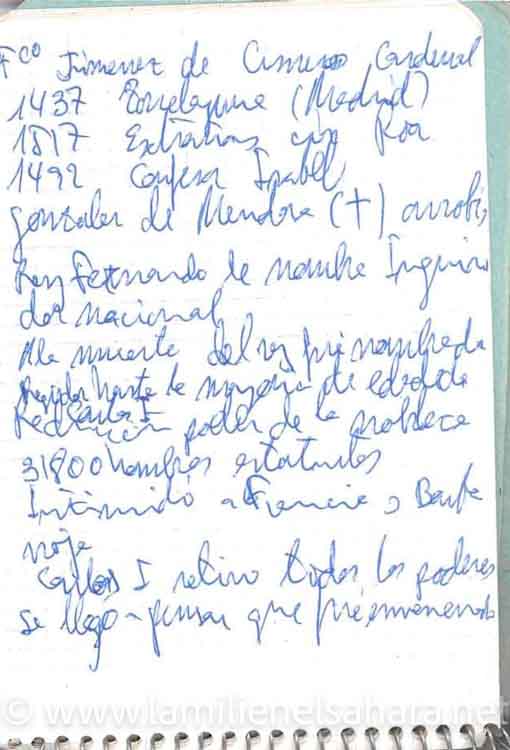 Fco Jimenez de Cisneros Cardenal
1437 Torrelaguna (Madrid)
1517 Roa
1492 Confesor Isabel
gonzalez de Mendoza (+) arzobis
Rey Fernando le nombra Inquisi
dor nacional
A la muerte del rey fue nombrado
Regidor hasta la mayoria de edad de
Carlos I
Reducción poder de la nobleza
31800 hombres
Intimidó a Francia y Barba
roja
Carlos I retiro todos los poderes
se llegó a pensar que fue envenenado
© www.lamilienelsahara.net